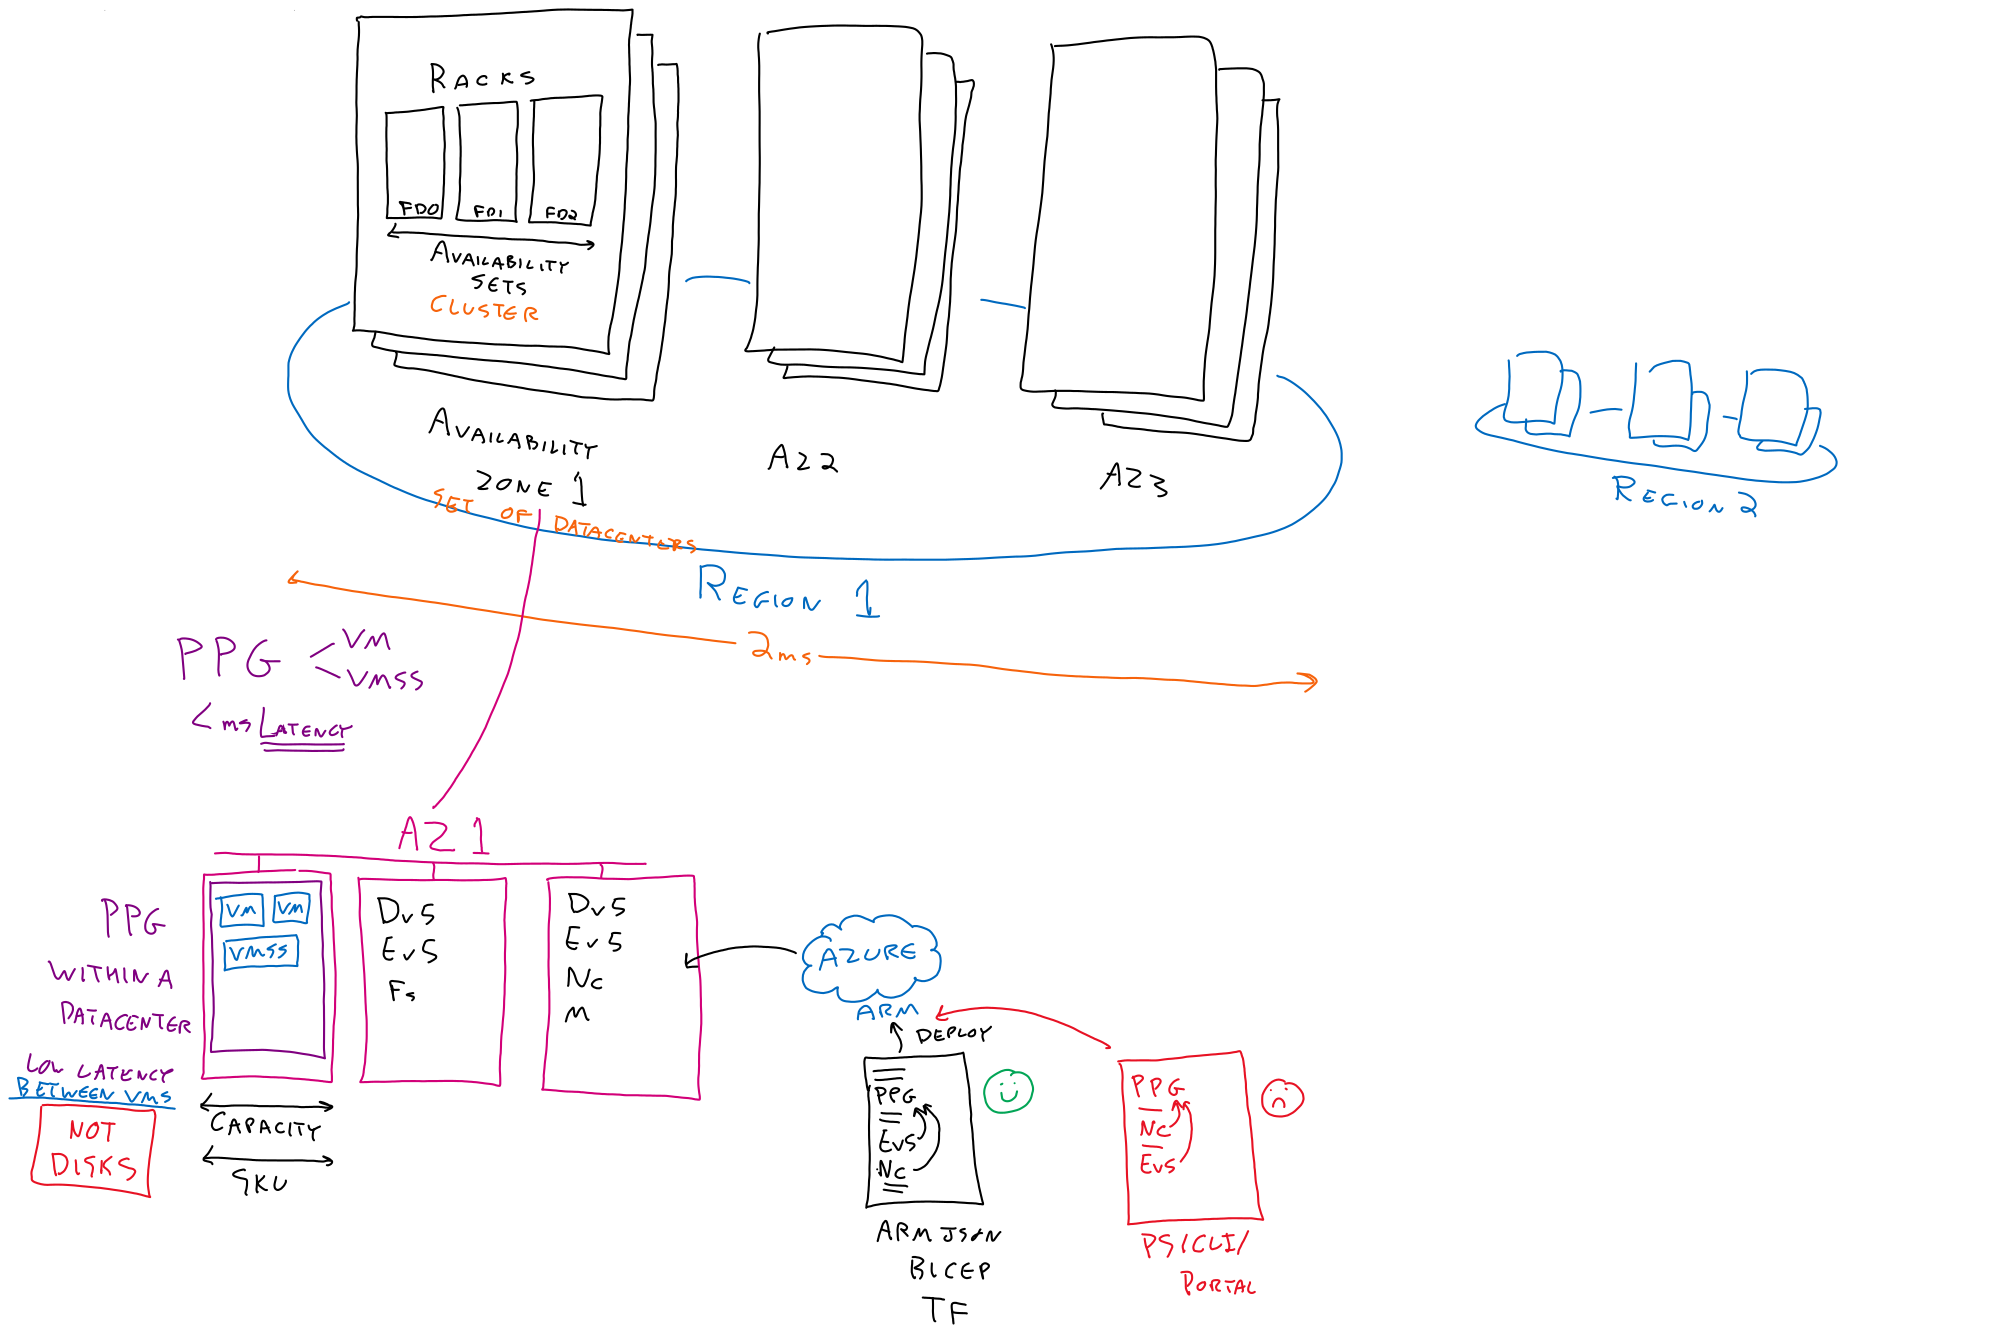 RACKS
FD0 FD1 FD2
AVAILABILITY
SETS
CLUSTER
AVAILABILITY
ZONE 1
SET OF DATACENTERS
AZ2
AZ3
REGION 1
REGION 2
2ms
PPG
VM
VMSS
< ms LATENCY
AZ 1
PPG
WITHIN A
DATACENTER
LOW LATENCY
BETWEEN VMS
NOT
DISKS
VM VM
VMSS
CAPACITY
SKU
Dv5
Ev5
Fs
Dv5
Ev5
Nc
M
AZURE
ARM
DEPLOY
PPG
Ev5
Nc
ARM JSON
BICEP
TF
PPG
Nc
Ev5
PS/CLI/
PORTAL